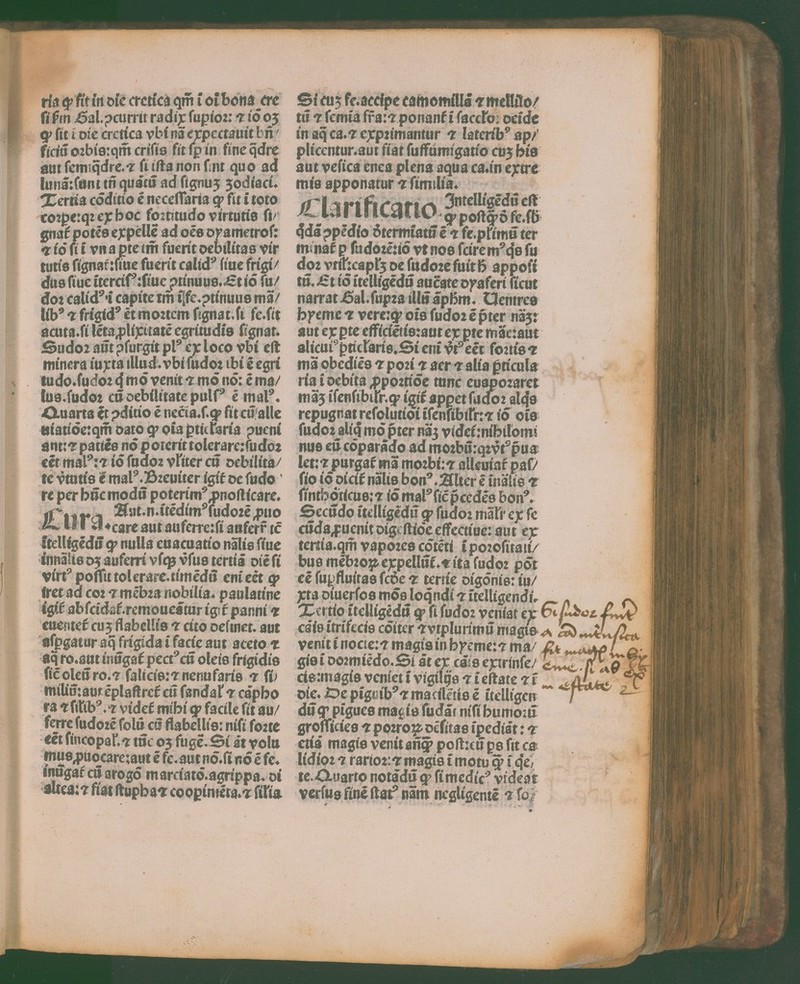 ria ꝙ fit in die cretica qm̄ ī oī bona cre
si ẜm Gal. ↄcurrit radix supior: ⁊ iō oꝫ
ꝙ sit ī die cretica vbi nā expectauit bn̄
ficiū orbis: qm̄ crisis fit sp̄ in fine q̄dre
aut semiq̄dre. ⁊ si ista non sint quo ad
lunā: sunt tn̄ quātū ad signuꝫ zodiaci.
Tertia cōditio ē necessaria ꝙ fit ī toto
corpe: qꝛ ex hoc fortitudo virtutis si
gnat̄ potēs expellē ad oēs dyametros:
⁊ iō si ī vna pte tm̄ fuerit debilitas vir
tutis signat̄: siue fuerit calidꝰ siue frigi
dus siue ītercisꝰ: siue ↄtinuus. Et iō su
dor calidꝰ ī capite tm̄ ī fe. ↄtinuus mā
libꝰ ⁊ frigidꝰ ēt mortem signat. si fe. sit
acuta. si lēta ꝓlixitatē egritudis signat.
Sudor aūt ↄsurgit plꝰ ex loco vbi est
minera iuxta illud. vbi sudor ibi ē egri
tudo. sudor q̄ mō venit ⁊ mō nō: ē ma
lus. sudor cū debilitate pulsꝰ ē malꝰ.
Quarta ēt ↄditio ē neccīa. s. ꝙ fit cū alle
uiatiōe: qm̄ dato ꝙ oīa pticlaria ↄueni
ant: ⁊ patiēs nō poterit tolerare: sudor
eēt malꝰ: ⁊ iō sudor vl̄iter cū debilita
te v̄tutis ē malꝰ. Breuiter igit̄ de sudo
re per hūc modū poterimꝰ ꝓnosticare.
Cura. Aut. n. ītēdimꝰ sudorē ꝓuo
care aut auferre: si auferr̄ tē
ītelligēdū ꝙ nulla euacuatio nālis siue
innālis dꝫ auferri vsꝙ v̄sus tertiā diē si
virtꝰ possit tolerare. timēdū eni eēt ꝙ
iret ad cor ⁊ mēbra nobilia. paulatine
igit̄ abscidat̄. remoueātur igit̄ panni ⁊
euentet̄ cuꝫ flabellis ⁊ cito desinet. aut
aspgatur aq̄ frigida ī facie aut aceto ⁊
aq̄ ro. aut inūgat̄ pectꝰ cū oleis frigidis
sic̄ oleū ro. ⁊ salicis: ⁊ nenufaris ⁊ si
miliū: aut ēplastret̄ cū sandal̄ ⁊ cāpho
ra ⁊ sil̄ibꝰ. ⁊ videt̄ mihi ꝙ facile sit au
ferre sudorē solū cū flabellis: nisi forte
eēt sincopal̄. ⁊ tūc oꝫ fugē. Si āt volu
mus ꝓuocare: aut ē fe. aut nō. si nō ē fe.
inūgat̄ cū arogō marciatō. agrippa. di
altea: ⁊ fiat stupha ⁊ coopimēta. ⁊ sil̄ia.
Si cuꝫ fe. accipe camomillā ⁊ mellilo
tū ⁊ semīa fr̄a: ⁊ ponant̄ ī saccl̄o: deīde
in aq̄ ca. ⁊ exprimantur ⁊ lateribꝰ ap
plicentur. aut fiat suffūmigatio cuꝫ his
aut vesica enea plena aqua ca. in extre
mis apponatur ⁊ similia.
Clarificatio. Intelligēdū est
ꝙ postꝙ̄ ō fe. sb̄
q̄dā ↄpēdio d̄termiatū ē ⁊ fe. pl̄imū ter
minat̄ p sudorē: iō vt nos scire mꝰ q̄s su
dor vtil̄: capl̄ꝫ de sudore fuit h̄ apposi
tū. Et iō ītelligēdū aucāte dyaseri sicut
narrat Gal. supra illū āph̄m. Uentres
hyeme ⁊ vere: ꝙ oīs sudor ē p̄ter nāꝫ:
aut ex pte efficiētis: aut ex pte māe: aut
alicuiꝰ p̄ticl̄aris. Si eni v̄tꝰ eēt fortis ⁊
mā obediēs ⁊ pori ⁊ aer ⁊ alia p̄ticula
ria ī debita ꝓportiōe tunc euaporaret
māꝫ īsensibil̄r. ꝙ igit̄ appet sudor alq̄s
repugnat resolutiōi īsensibil̄r: ⁊ iō oīs
sudor aliq̄ mō p̄ter nāꝫ videt̄: nihilomi
nus eū cōparādo ad morbū: qꝛ v̄tꝰ p̄ua
let: ⁊ purgat̄ mā morbi: ⁊ alleuiat̄ pas
sio iō dicit̄ nālis bonꝰ. Alter ē īnālis ⁊
sinthōticus: ⁊ iō malꝰ sic̄ p̄cedēs bonꝰ.
Secūdo ītelligēdū ꝙ sudor māl̄r ex se
cūda ꝓuenit digestiōe effectiue: aut ex
tertia. qm̄ vapores cōtēti ī porositati
bus mēbroꝝ expellūt̄. ⁊ ita sudor pōt
eē supfluitas scd̄e ⁊ tertie digōnis: iu
xta diuersos mōs loq̄ndi ⁊ ītelligendi.
Tertio ītelligēdū ꝙ si sudor veniat ex
cāis ītrīsecis cōiter ⁊ vtplurimū magis
venit ī nocte: ⁊ magis in hyeme: ⁊ ma
gis ī dormiēdo. Si āt ex cāis extrinse
cis: magis veniet ī vigilijs ⁊ ī estate ⁊ ī
die. De pīguibꝰ ⁊ macilētis ē ītelligen
dū ꝙ pīgues magis sudāt nisi humorū
grossicies ⁊ poroꝝ dēsitas īpediāt: ⁊
etiā magis venit anꝙ̄ post: cū ps sit ca
lidior ⁊ rarior: ⁊ magis ī motu ꝙ̄ ī q̄e
te. Quarto notādū ꝙ si medicꝰ videat
versus finē statꝰ nām negligentē ⁊ so
Si sudor
estate